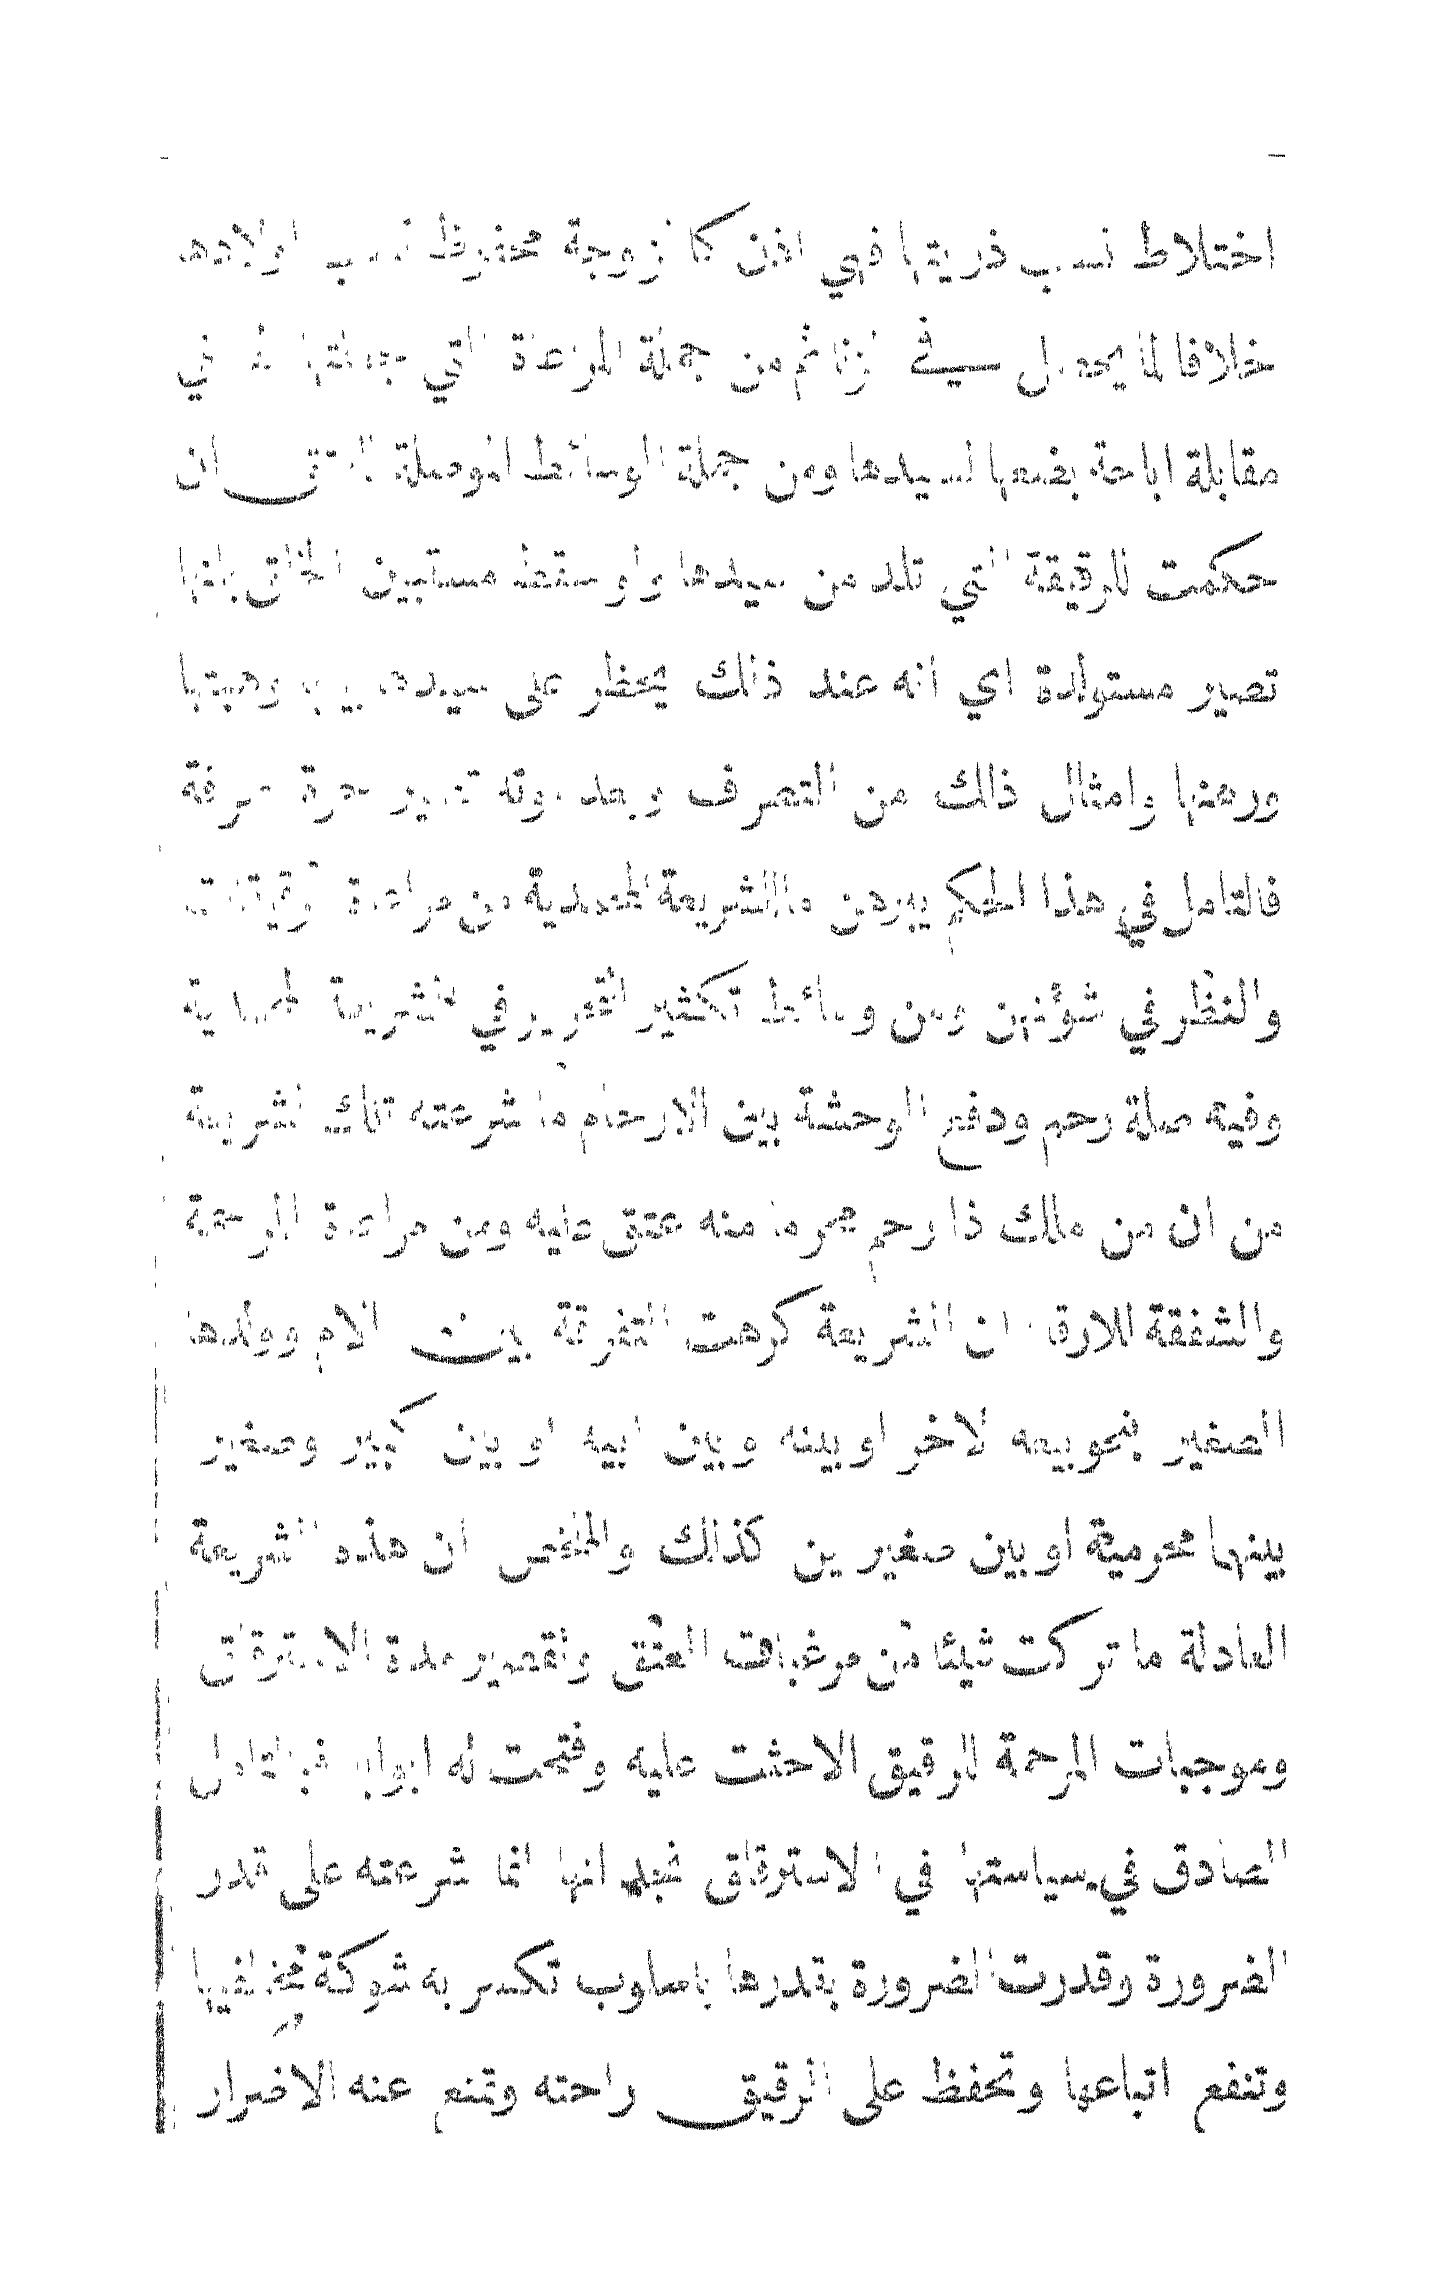 اختلاط نسب ذريتها فهي اذن كالزوجة محفوظ نسب اولادها
خلافا لما يحصل في الزنا ثم من جملة المراعاة التي جعلتها له في
مقابلة اباحة بضعها لسيدها ومن جملة الوسائط الموصلة للعتق ان
حكمت للرقيقة التي تلد من سيدها ولو سقط مستبين الخلق بانها
تصير مستولدة اي انه عند ذلك يحظر على سيدها بيعها وهبتها
ورهنها وامثال ذلك من التصرف وبعد موته تصير حرة
فالتامل في هذا الحكم يبرهن ما للشريعة المحمدية من مراعاة الرقيقات
والنظر في شؤنهن ومن وسائط تكثير التحرير في الشريعة المحمدية
وفيه صلة رحم ودفع الوحشة بين الارحام ما شرعته تلك الشريعة
من ان من ملك ذا رحم محرما منه عتق عليه ومن مراعاة المرحمة
والشفقة للارقاء ان الشريعة كرهت التفرقة بين الام وولدها
الصغير بنحو بيعه لاخر او بينه وبين ابيه او بين كبير وصغير
بينهما محرمية او بين صغيرين كذلك والملخص ان هذه الشريعة
العادلة ما تركت شيئا من مرغبات العتق وتقصير مدة الاسترقاق
وموجبات المرحمة للرقيق الا حثت عليه وفتحت له ابوابه فبالتامل
الصادق في سياستها في الاسترقاق نجد انها انما شرعته على قدر
الضرورة وقدرت الضرورة بقدرها باسلوب تكسر به شوكة مخالفيها
وتنفع اتباعها وتحفظ على الرقيق راحته وتمنع عنه الاضرار